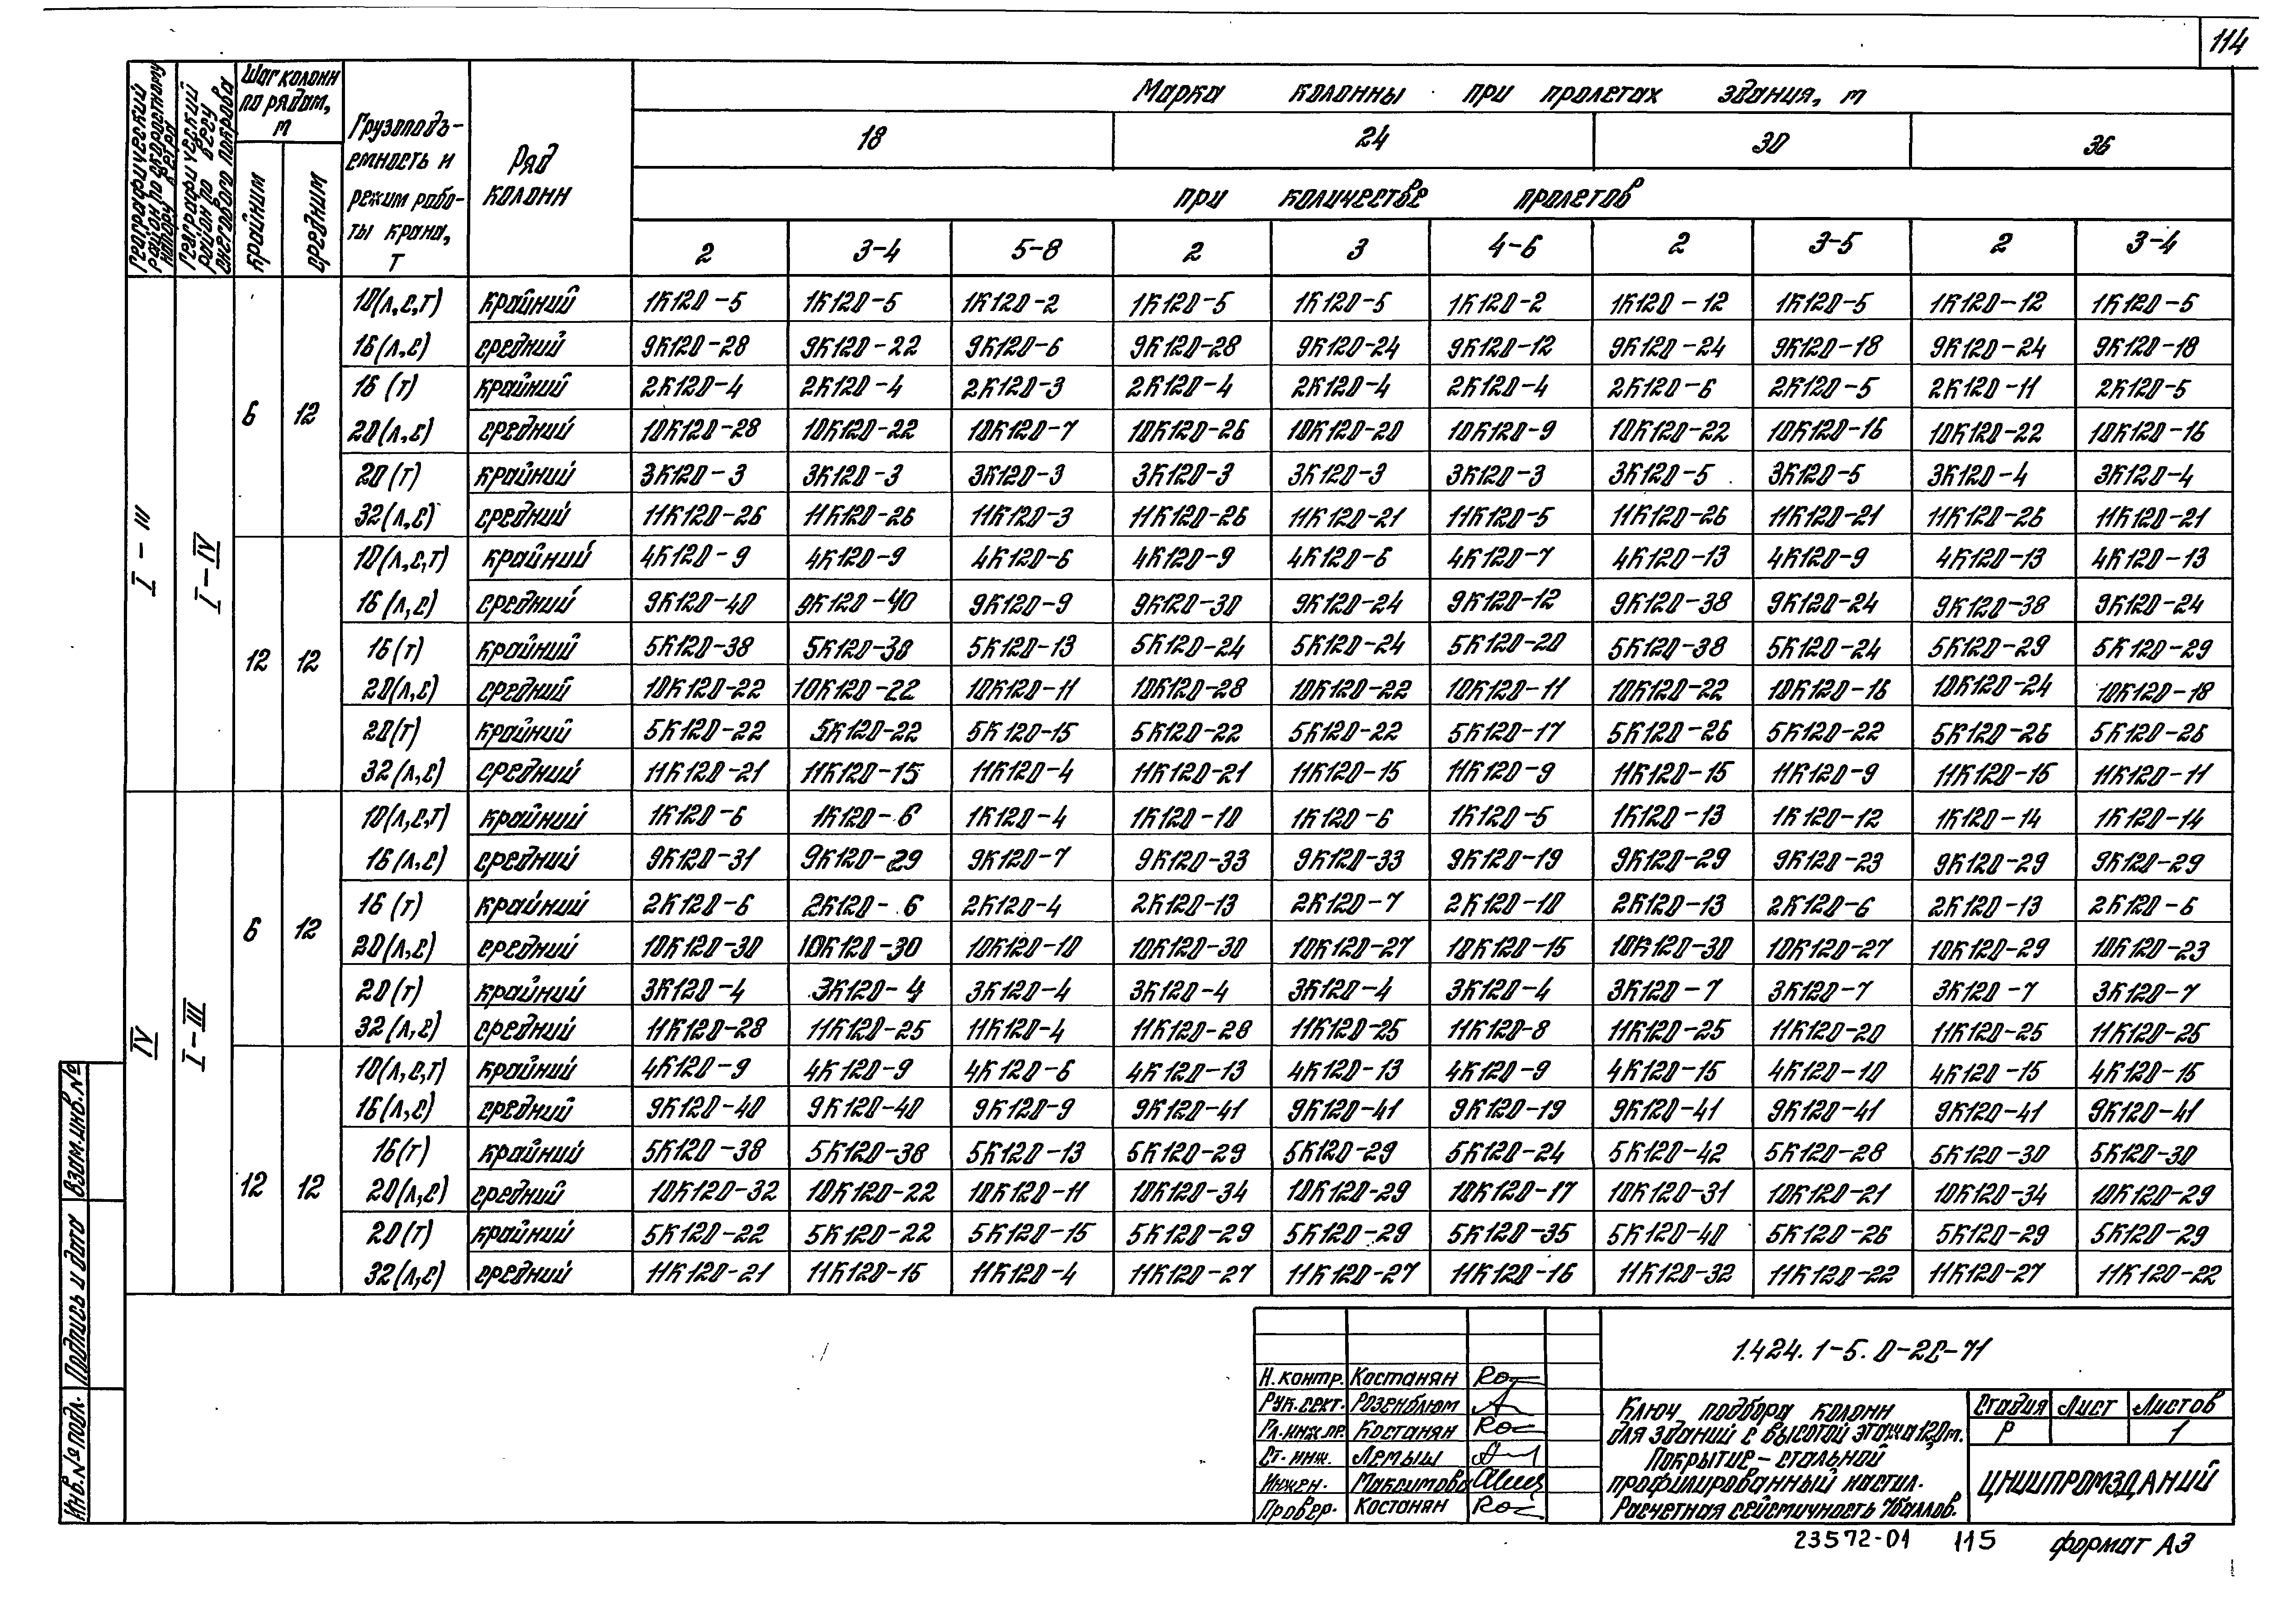 114
Географический район по скоростному напору ветра
Географический район по весу снегового покрова
Шаг колонн по рядам, м
крайним
средним
Грузоподъ-
емность и
режим рабо-
ты крана,
т
Ряд
колонн
Марка колонны при пролетах здания, м
18 24 30 36
при количестве пролетов
2 3-4 5-8 2 3 4-6 2 3-5 2 3-4
I - III
I-IV
6 12
10(л,с,т) крайний 1К120-5 1К120-5 1К120-2 1К120-5 1К120-5 1К120-2 1К120-12 1К120-5 1К120-12 1К120-5
16(л,с) средний 9К120-28 9К120-22 9К120-6 9К120-28 9К120-24 9К120-12 9К120-24 9К120-18 9К120-24 9К120-18
16(т) крайний 2К120-4 2К120-4 2К120-3 2К120-4 2К120-4 2К120-4 2К120-6 2К120-5 2К120-11 2К120-5
20(л,с) средний 10К120-28 10К120-22 10К120-7 10К120-26 10К120-20 10К120-9 10К120-22 10К120-16 10К120-22 10К120-16
20(т) крайний 3К120-3 3К120-3 3К120-3 3К120-3 3К120-3 3К120-3 3К120-5 3К120-5 3К120-4 3К120-4
32(л,с) средний 11К120-26 11К120-26 11К120-3 11К120-26 11К120-21 11К120-5 11К120-26 11К120-21 11К120-26 11К120-21
12 12
10(л,с,т) крайний 4К120-9 4К120-9 4К120-6 4К120-9 4К120-6 4К120-7 4К120-13 4К120-9 4К120-13 4К120-13
16(л,с) средний 9К120-40 9К120-40 9К120-9 9К120-30 9К120-24 9К120-12 9К120-38 9К120-24 9К120-38 9К120-24
16(т) крайний 5К120-38 5К120-38 5К120-13 5К120-24 5К120-24 5К120-20 5К120-38 5К120-24 5К120-29 5К120-29
20(л,с) средний 10К120-22 10К120-22 10К120-11 10К120-28 10К120-22 10К120-11 10К120-22 10К120-16 10К120-24 10К120-18
20(т) крайний 5К120-22 5К120-22 5К120-15 5К120-22 5К120-22 5К120-17 5К120-26 5К120-22 5К120-26 5К120-26
32(л,с) средний 11К120-21 11К120-15 11К120-4 11К120-21 11К120-15 11К120-9 11К120-15 11К120-9 11К120-15 11К120-11
IV
I-III
6 12
10(л,с,т) крайний 1К120-6 1К120-6 1К120-4 1К120-10 1К120-6 1К120-5 1К120-13 1К120-12 1К120-14 1К120-14
16(л,с) средний 9К120-31 9К120-29 9К120-7 9К120-33 9К120-33 9К120-19 9К120-29 9К120-23 9К120-29 9К120-29
16(т) крайний 2К120-6 2К120-6 2К120-4 2К120-13 2К120-7 2К120-10 2К120-13 2К120-6 2К120-13 2К120-6
20(л,с) средний 10К120-30 10К120-30 10К120-10 10К120-30 10К120-27 10К120-15 10К120-30 10К120-27 10К120-29 10К120-23
20(т) крайний 3К120-4 3К120-4 3К120-4 3К120-4 3К120-4 3К120-4 3К120-7 3К120-7 3К120-7 3К120-7
32(л,с) средний 11К120-28 11К120-25 11К120-4 11К120-28 11К120-25 11К120-8 11К120-25 11К120-20 11К120-25 11К120-25
12 12
10(л,с,т) крайний 4К120-9 4К120-9 4К120-6 4К120-13 4К120-13 4К120-9 4К120-15 4К120-10 4К120-15 4К120-15
16(л,с) средний 9К120-40 9К120-40 9К120-9 9К120-41 9К120-41 9К120-19 9К120-41 9К120-41 9К120-41 9К120-41
16(т) крайний 5К120-38 5К120-38 5К120-13 5К120-29 5К120-29 5К120-24 5К120-42 5К120-28 5К120-30 5К120-30
20(л,с) средний 10К120-32 10К120-22 10К120-11 10К120-34 10К120-29 10К120-17 10К120-31 10К120-21 10К120-34 10К120-29
20(т) крайний 5К120-22 5К120-22 5К120-15 5К120-29 5К120-29 5К120-35 5К120-40 5К120-26 5К120-29 5К120-29
32(л,с) средний 11К120-21 11К120-15 11К120-4 11К120-27 11К120-27 11К120-16 11К120-32 11К120-22 11К120-27 11К120-22
Взам.инв.№
Подпись и дата
Инв.№ подл.
Н.контр. Костанян
Рук.сект. Розенблюм
Гл.инж.пр. Костанян
Ст.инж. Лемыш
Инжен. Максимова
Провер. Костанян
1.424.1-5.0-2С-71
Ключ подбора колонн
для зданий с высотой этажа 12,0м.
Покрытие - стальной
профилированный настил.
Расчетная сейсмичность 7баллов.
Стадия Лист Листов
Р 1
ЦНИИПРОМЗДАНИЙ
23572-01 115 формат А3